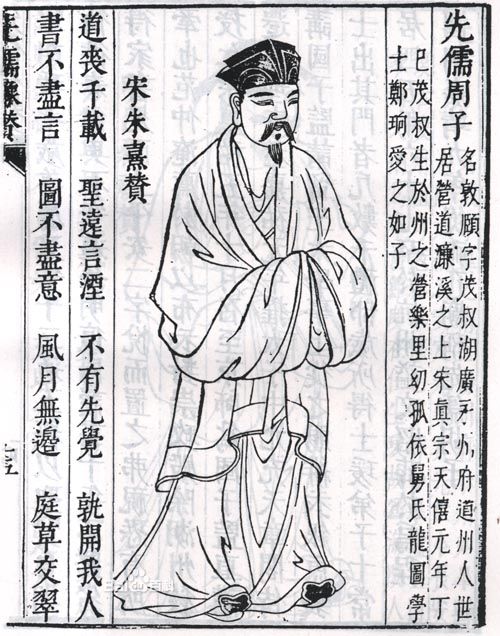 先儒周子
名敦願字茂叔湖廣永州府道州人世
居營道濂溪之上宋真宗天僖元年丁
巳茂叔生於州之營樂里幼孤依舅氏龍圖學
士鄭珦愛之如子
宋朱熹贊
道喪千載 聖遠言湮 不有先覺 孰開我人
書不盡言 圖不盡意 風月無邊 庭草交翠
儒像贊
Bai百科